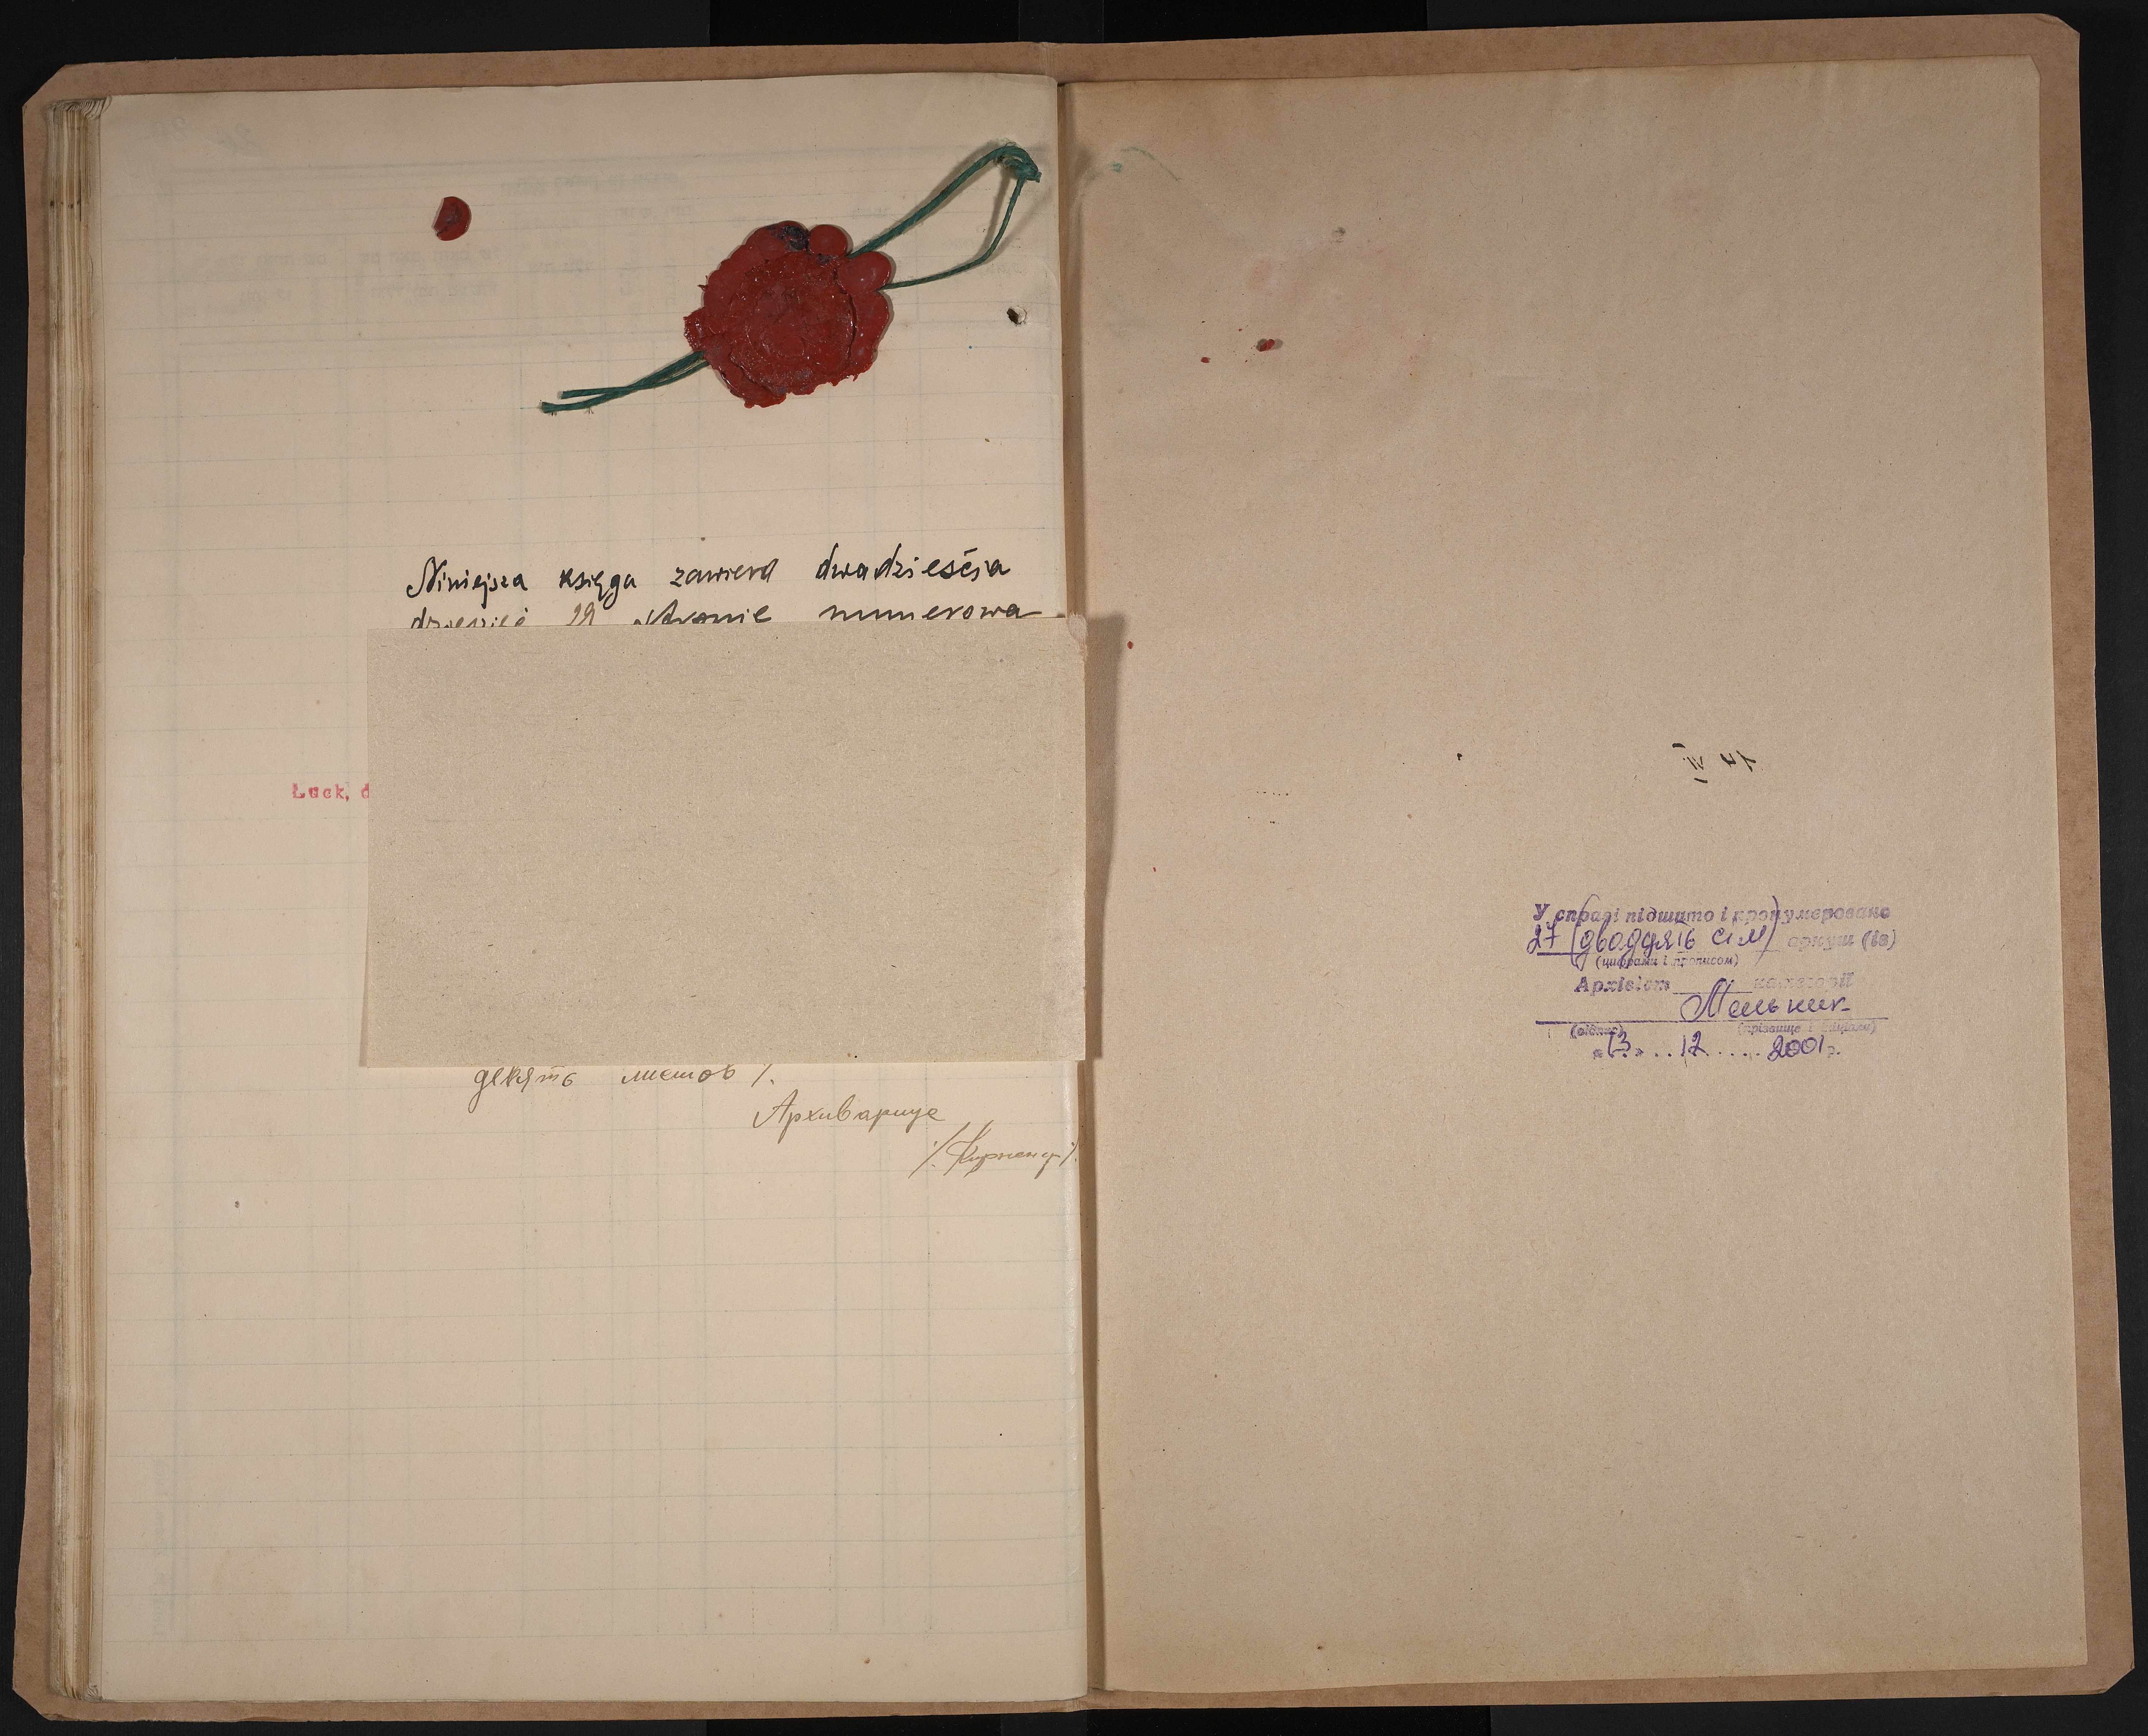 Niniejsza księga zawiera dwadzieścia
dziewięć 29 stronic numerowa
Łuck, d
девять листов /.
Архивариус
У справі підшито і пронумеровано
27 (двадцять сім) аркуш (ів)
(цифрами і прописом)
Архівіст категорії
Мельник
(підпис) (прізвище і ініціали)
«13» .. 12 .... 2001 р.